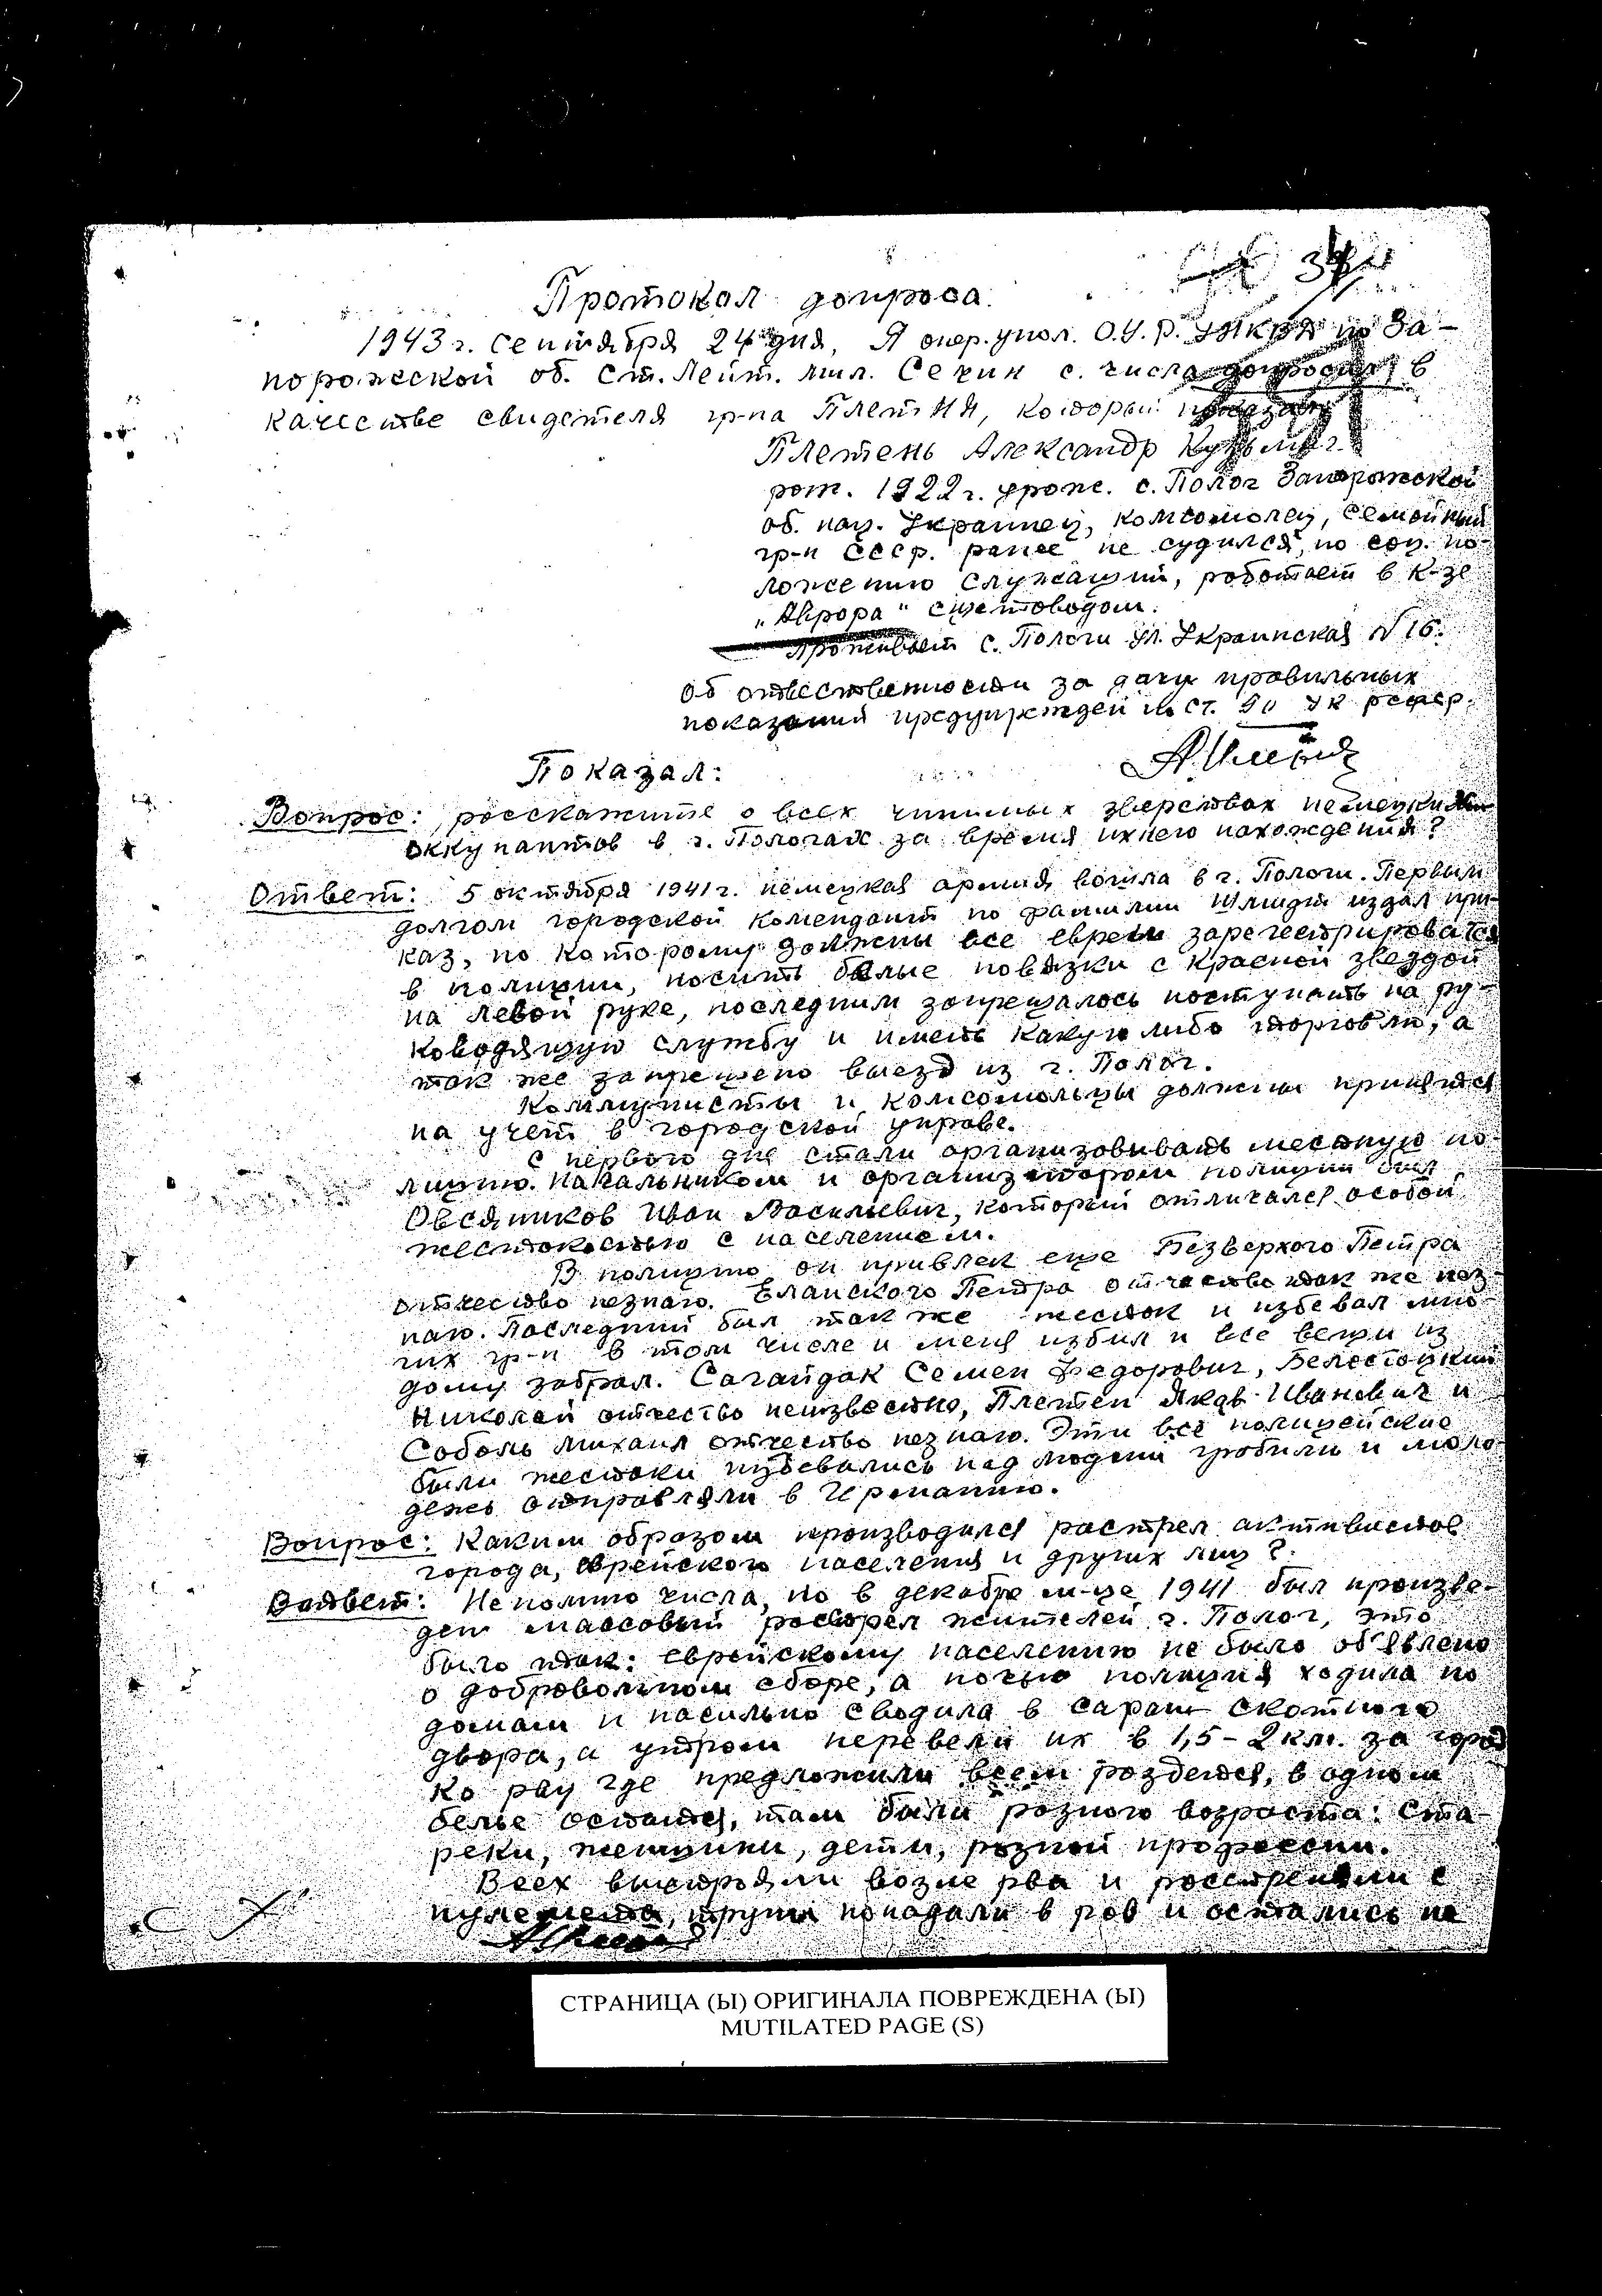 34
Протокол допроса.
1943 г. сентября 24 дня, Я опер. упол. О.У.Р. УНКВД по За-
порожской об. Ст. Лейт. мил. Сечин с. числа допросил в
качестве свидетеля гр-на Плетня, который показал
Плетень Александр Кузьмич
рож. 1922 г. урож. с. Полог Запорожской
об. нац. Украинец, комсомолец, семейный
гр-н СССР. ранее не судился, по соц. по-
ложению служащий, роботает в к-зе
„Аврора“ сщетоводом.
Проживает с. Пологи ул. Украинская N 16.
Об ответственности за дачу правильных
показаний предупрежден ст. 90 УК РСФСР.
Показал:
Вопрос: росскажите о всех чинимых зверствах немецких
оккупантов в г. Пологах за время ихнего нахождения?
Ответ: 5 октября 1941 г. немецкая армия вошла в г. Пологи. Первым
долгом городской комендант по фамилии Шмидт издал при-
каз, по которому должны все евреи зарегестрироватся
в полиции, носить белые повязки с красной звездой
на левой руке, последним запрещалось поступать на ру-
ководящую службу и иметь какую либо торговлю, а
так же запрещено выезд из г. Полог.
Коммунисты и комсомольцы должны принятся
на учет в городской управе.
С первого дня стали организовивать местную по-
лицию. Начальником и организатором полиции был
Овсяников Иван Васильевич, который отличался особой
жестокостью с населением.
В полицию он привлек еще Безверхого Петра
отчество незнаю. Еланского Петра отчество так же нез-
наю. Последний был так же жесток и избевал мно-
гих гр-н в том числе и меня избил и все вещи из
дому забрал. Сагайдак Семен Федорович, Белестоцкий
Николай отчество неизвестно, Плетен Яков Иванович и
Соболь Михаил отчество незнаю. Эти все полицейские
были жестоки издевались над людьми гробили и моло-
дежь отправляли в Германию.
Вопрос: Каким образом производился растрел активистов
города, еврейского населения и других лиц?
Воответ: Не помню числа, но в декабре м-це 1941 был произве-
ден массовый росстрел жителей г. Полог, это
было так: еврейскому населению не было об'явлено
о добровольном сборе, а ночью полиция ходила по
домам и насильно сводила в сараи скотного
двора, а утром перевели их в 1,5 – 2 км. за город
ко рву где предложили всем роздется, в одном
белье остатся, там были розного возроста: ста-
реки, женщини, дети, розной професии.
Всех выстроили возле рва и росстреляли с
пулемета, трупи попадали в ров и остались не
СТРАНИЦА (Ы) ОРИГИНАЛА ПОВРЕЖДЕНА (Ы)
MUTILATED PAGE (S)